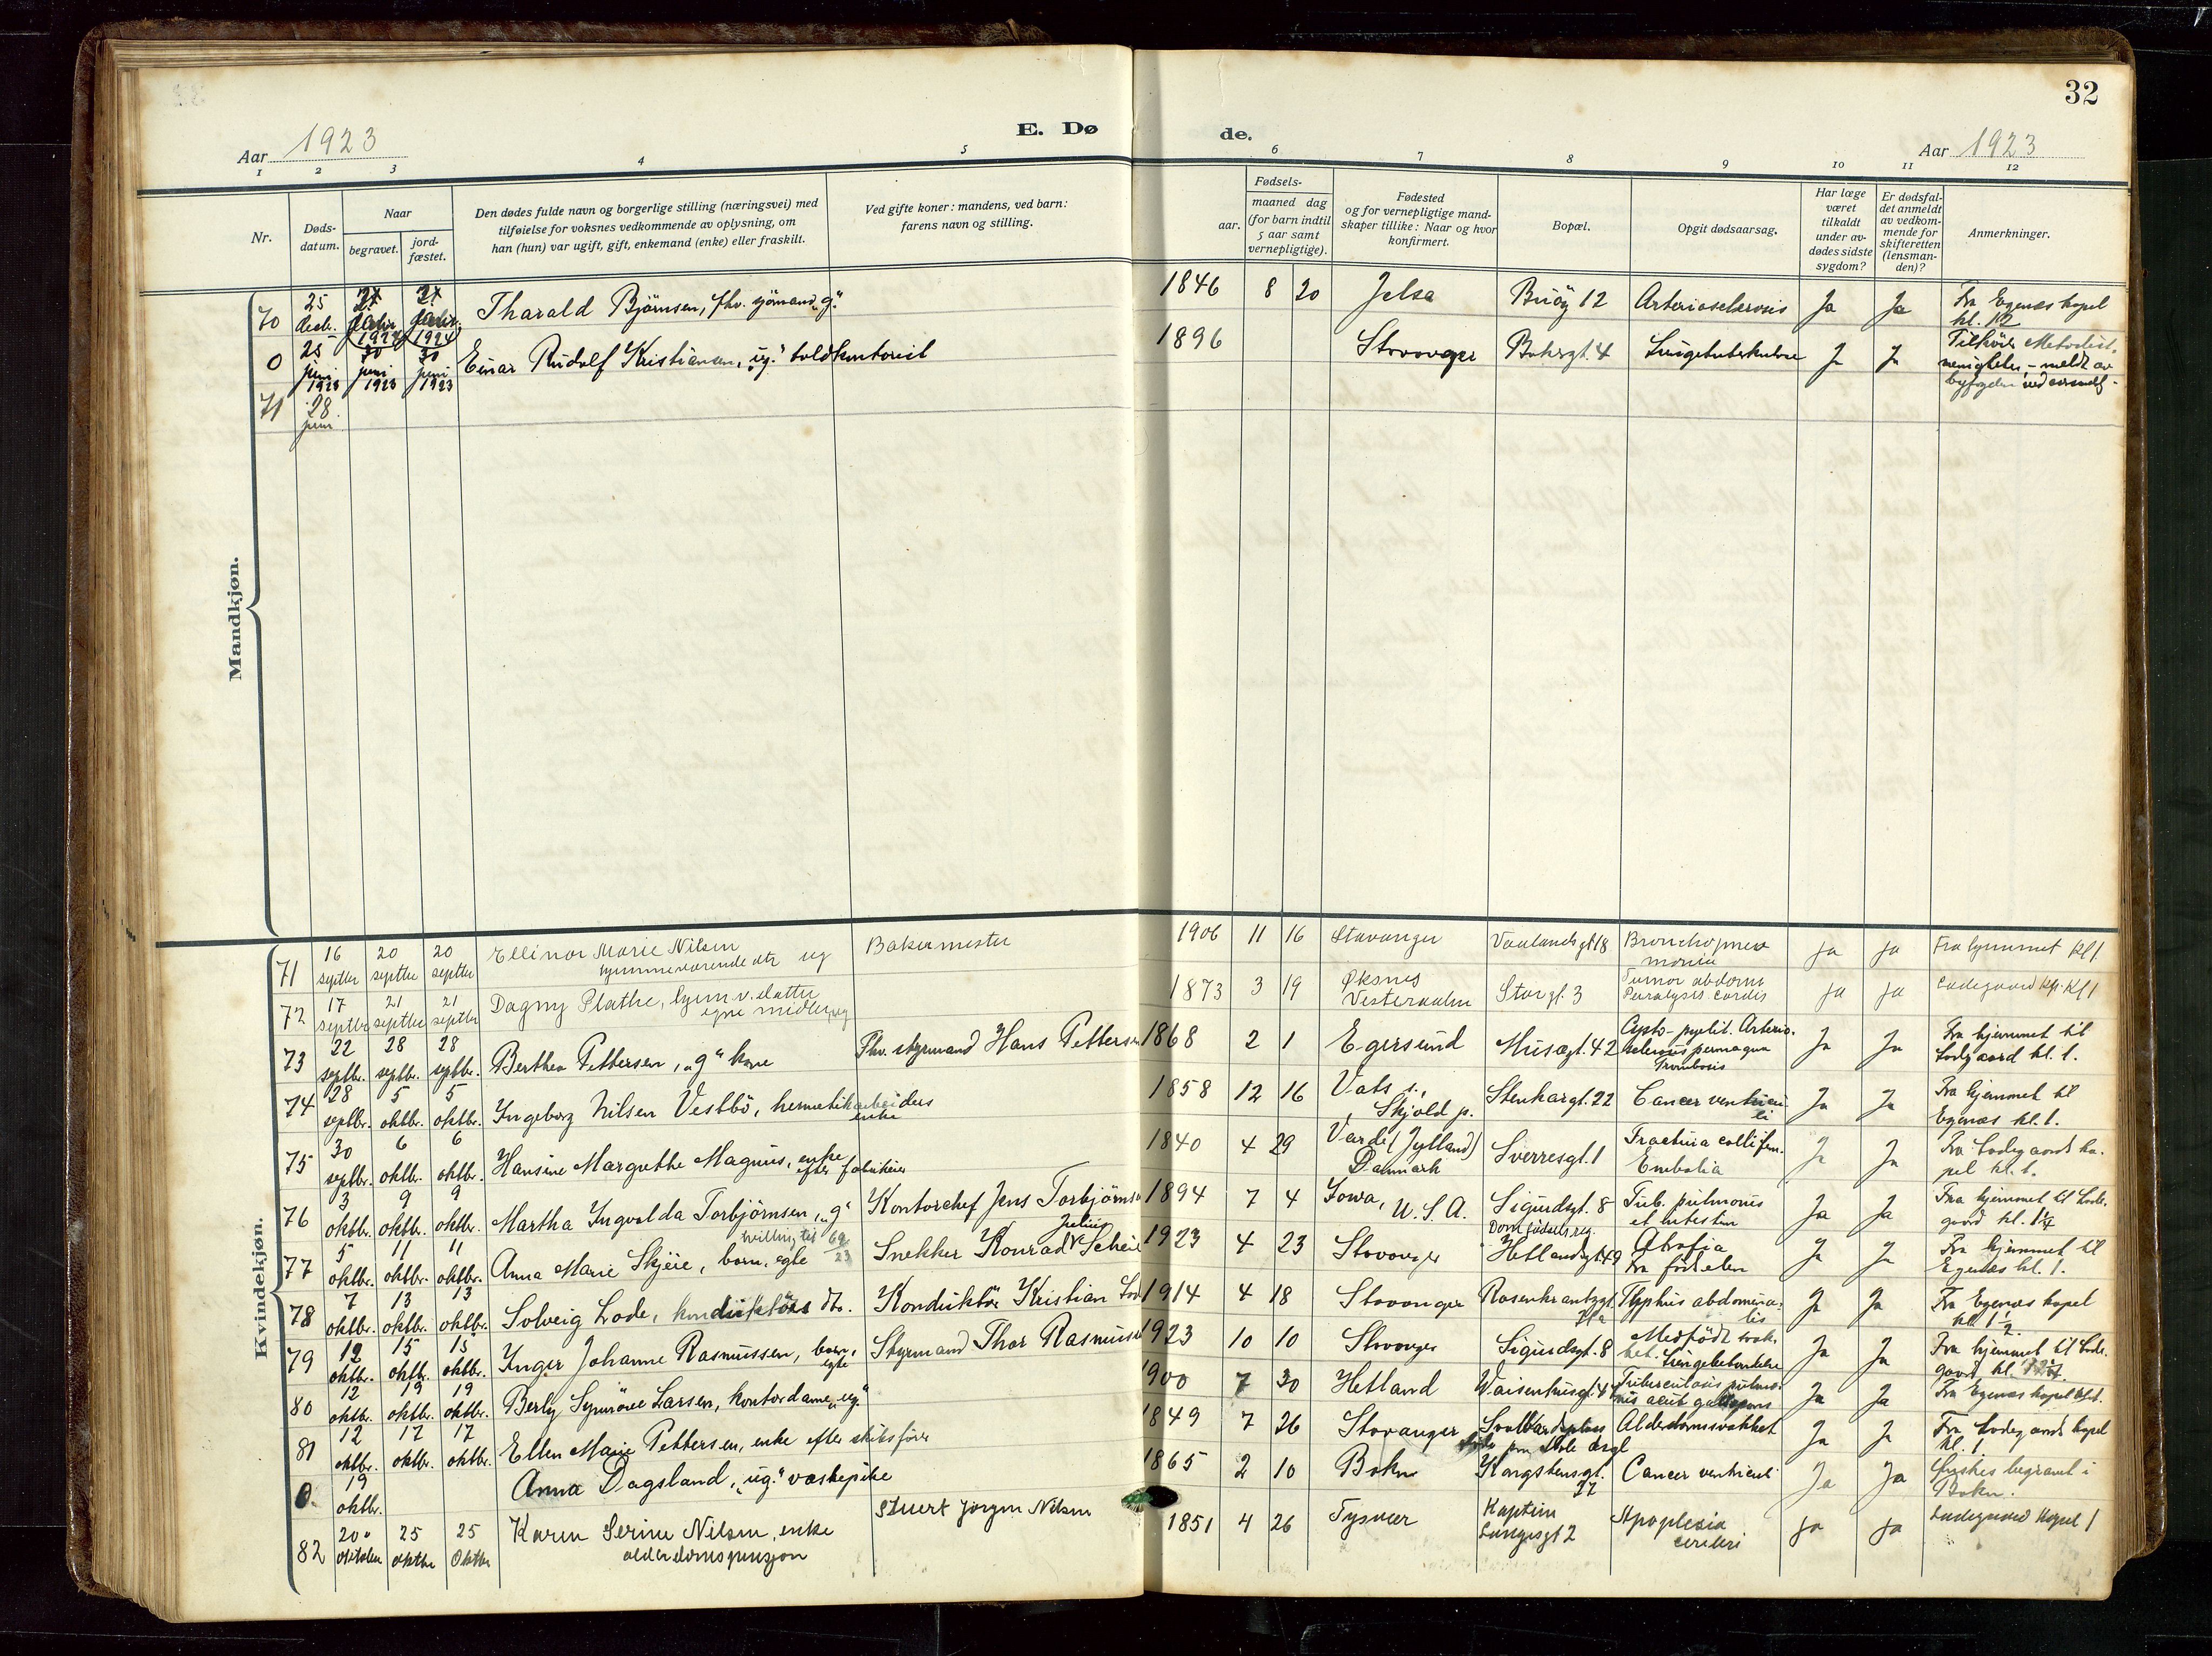 32
Aar 1923
E. Dø
de.
Aar 1923
1 2 3 4 5 6 7 8 9 10 11 12
Nr.
Døds-
datum.
Naar
begravet.
jord-
fæstet.
Den dødes fulde navn og borgerlige stilling (næringsvei) med
tilføielse for voksnes vedkommende av oplysning, om
han (hun) var ugift, gift, enkemand (enke) eller fraskilt.
Ved gifte koner: mandens, ved barn:
farens navn og stilling.
Fødsels-
aar. maaned dag
(for barn indtil
5 aar samt
vernepligtige).
Fødested
og for vernepligtige mand-
skaper tillike: Naar og hvor
konfirmert.
Bopæl.
Opgit dødsaarsag.
Har læge
været
tilkaldt
under av-
dødes sidste
sygdom?
Er dødsfal-
det anmeldt
av vedkom-
mende for
skifteretten
(lensman-
den)?
Anmerkninger.
Mandkjøn.
70 25 decbr. 1924 1924 Tharald Bjørnsen, fhv. sjømand „g." 1846 8 20 Jelsa Buøy 12 Arteriosclerosis Ja Ja Fra Egenæs kapel
kl. 12
0 25 juni 1923 30 juni 1923 30 juni 1923 Einar Rudolf Kristiansen, „ug." toldkontorist 1896 Stavanger 4 Lungetuberkulose Ja Ja Tilhörer Metodist-
menigheten, - meldt av
71 28 juni
Kvindekjøn.
71 16 septbr 20 septbr 20 septbr Ellinor Marie Nilsen
hjemmeværende dtr ug Bakermester 1906 11 16 Stavanger Vaalandsgt 18 Bronchopneu
monia Ja Ja Fra hjemmet kl 1
72 17 septbr 21 septbr 21 septbr Dagny Plathe, hjem v. datter
egne midler, ug 1873 3 19 Øksnes
Vesteraalen Storgt. 3 Tumor abdomi
Paralysis cordis ja ja Lodegaard kp. kl 1
73 22 septbr. 28 septbr. 28 septbr. Berthea Pettersen, „g" kone Fhv. styrmand Hans Pettersen 1868 2 1 Egersund Musægt. 42 Cysto-pyelit. Arterio-
sclerosis permagna
Trombosis Ja Ja Fra hjemmet til
Lodgaard kl. 1.
74 28 septbr. 5 oktbr. 5 oktbr. Ingeborg Nilsen Vestbö, hermetikarbeiders
enke 1858 12 16 Vats s.,
Skjold p. Stenkargt. 22 Cancer ventricu
li Ja Ja Fra hjemmet til
Egenæs kl. 1.
75 30 septbr. 6 oktbr. 6 oktbr. Hansine Margrethe Magnus, enke
efter fabrikeier 1840 4 29 Varde (Jylland)
Danmark Sverresgt. 1 Fractura colli fem.
Embolia Ja Ja Fra Lodegaards ka-
pel kl. 1.
76 3 oktbr. 9 oktbr. 9 oktbr. Martha Ingvalda Torbjörnsen, „g" Kontorchef Jens Torbjörnsen 1894 7 4 Iowa, U. S. A. Sigurdsgt. 8 Tub. pulmonis
et intestin Ja Ja Fra hjemmet til Lode-
gaard kl. 1¼
77 5 oktbr. 11 oktbr. 11 oktbr. Anna Marie Skjeie, barn, egte
tvilling til 69/23 Snekker Konrad Julius Scheie 1923 4 23 Stavanger Hetlandsgt. 49 Atrofia
fra födselen Ja Ja Fra hjemmet til
Egenæs kl. 1.
78 7 oktbr. 13 oktbr. 13 oktbr. Solveig Lode, konduktörs dtr. Konduktör Kristian Lode 1914 4 18 Stavanger Rosenkrantzgt. Typhus abdomina-
lis Ja Ja Fra Egenæs kapel
kl. 1½.
79 12 oktbr. 15 oktbr. 15 oktbr. Inger Johanne Rasmussen, barn,
egte Styrmand Thor Rasmussen 1923 10 10 Stavanger Sigurdsgt. 8 Medfödt svak-
het. Lungebetændelse Ja Ja Fra hjemmet til Lode-
gaard kl.
80 12 oktbr. 19 oktbr. 19 oktbr. Berly Synnöve Larsen, kontordame „ug." 1900 7 30 Hetland Waisenhusgt. Tuberculosis pulmo-
nis Ja Ja Fra Egenæs kapel kl. 1.
81 12 oktbr. 17 oktbr. 17 oktbr. Ellen Marie Pettersen, enke efter skibsförer 1849 7 26 Stavanger Alderdomssvakhet Ja Ja Fra Lodegaards kapel
kl. 1
0. 19 oktbr. Anna Dagsland, „ug." vaskepike 1865 2 10 Bokn Kongstensgt.
27 Cancer ventriculi Ja Ja Ønskes begravet i
Bokn.
82 20 oktober 25 oktbr 25 Oktbr Karen Serine Nilsen, enke
alderdomspensjon Stuert Jörgen Nilsen 1851 4 26 Tysvær Kaptein
Langesgt 2 Apoplexia
cerebri ja ja Lodegaard Kapel 1